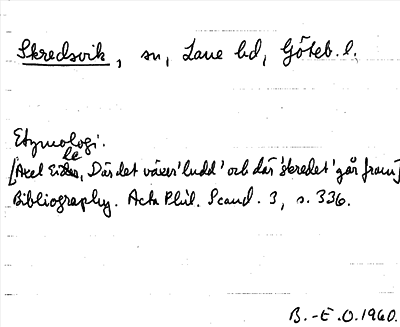 Skredsvik, sn, Lane hd, Göteb. l.
Etymologi.
[Axel Eide, Där det växer 'ludd' och där 'skredet' går fram]
Bibliography. Acta Phil. Scand. 3, s. 336.
B.-E.O. 1960.